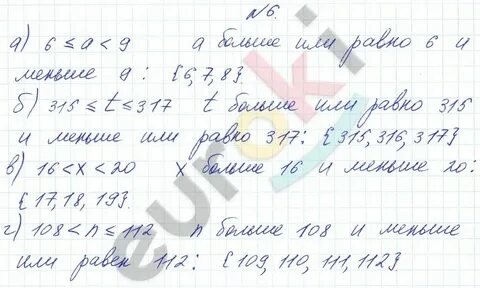 №6.
а) 6 ≤ a < 9 a больше или равно 6 и
меньше 9 : {6,7,8}.
б) 315 ≤ t ≤ 317 t больше или равно 315
и меньше или равно 317: {315, 316, 317}
в) 16 < x < 20 x больше 16 и меньше 20:
{17, 18, 19}.
г) 108 < n ≤ 112 n больше 108 и меньше
или равен 112: {109, 110, 111, 112}
euroki